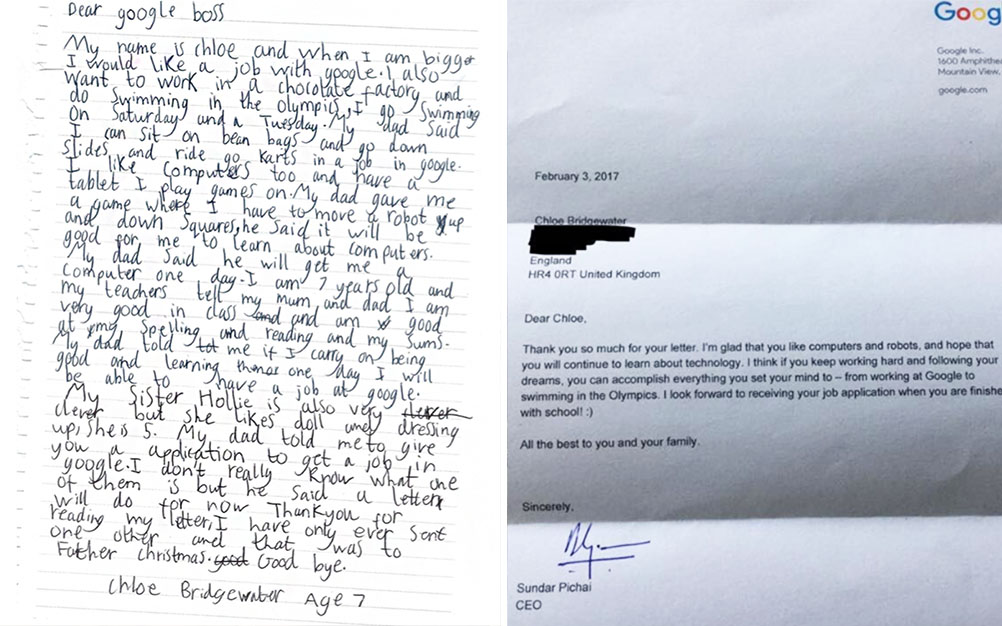 Dear google boss
My name is chloe and when I am bigger
I would like a job with google. I also
want to work in a chocolate factory and
do swimming in the olympics, I go swimming
On Saturday and a Tuesday. My dad said
I can sit on bean bags and go down
slides and ride go karts in a job in google.
I like computers too and have a
tablet I play games on. My dad gave me
a game where I have to move a robot up
and down squares, he said it will be
good for me to learn about computers.
My dad said he will get me a
computer one day. I am 7 years old and
my teachers tell my mum and dad I am
very good in class and and am good
at my spelling and reading and my sums.
My dad told tot me if I carry on being
good and learning one day I will
be able to have a job at google.
My Sister Hollie is also very clever
clever but she likes doll and dressing
up, she is 5. My dad told me to give
you a application to get a job in
google. I don't really know what one
of them is but he said a letter
will do for now Thankyou for
reading my letter, I have only ever sent
one other and that was to
Father christmas. good Good bye.
Chloe Bridgewater Age 7
Goog
Google Inc.
1600 Amphithe
Mountain View,
google.com
February 3, 2017
Chloe Bridgewater
England
HR4 0RT United Kingdom
Dear Chloe,
Thank you so much for your letter. I'm glad that you like computers and robots, and hope that
you will continue to learn about technology. I think if you keep working hard and following your
dreams, you can accomplish everything you set your mind to – from working at Google to
swimming in the Olympics. I look forward to receiving your job application when you are finishe
with school! :)
All the best to you and your family.
Sincerely,
Sundar Pichai
CEO